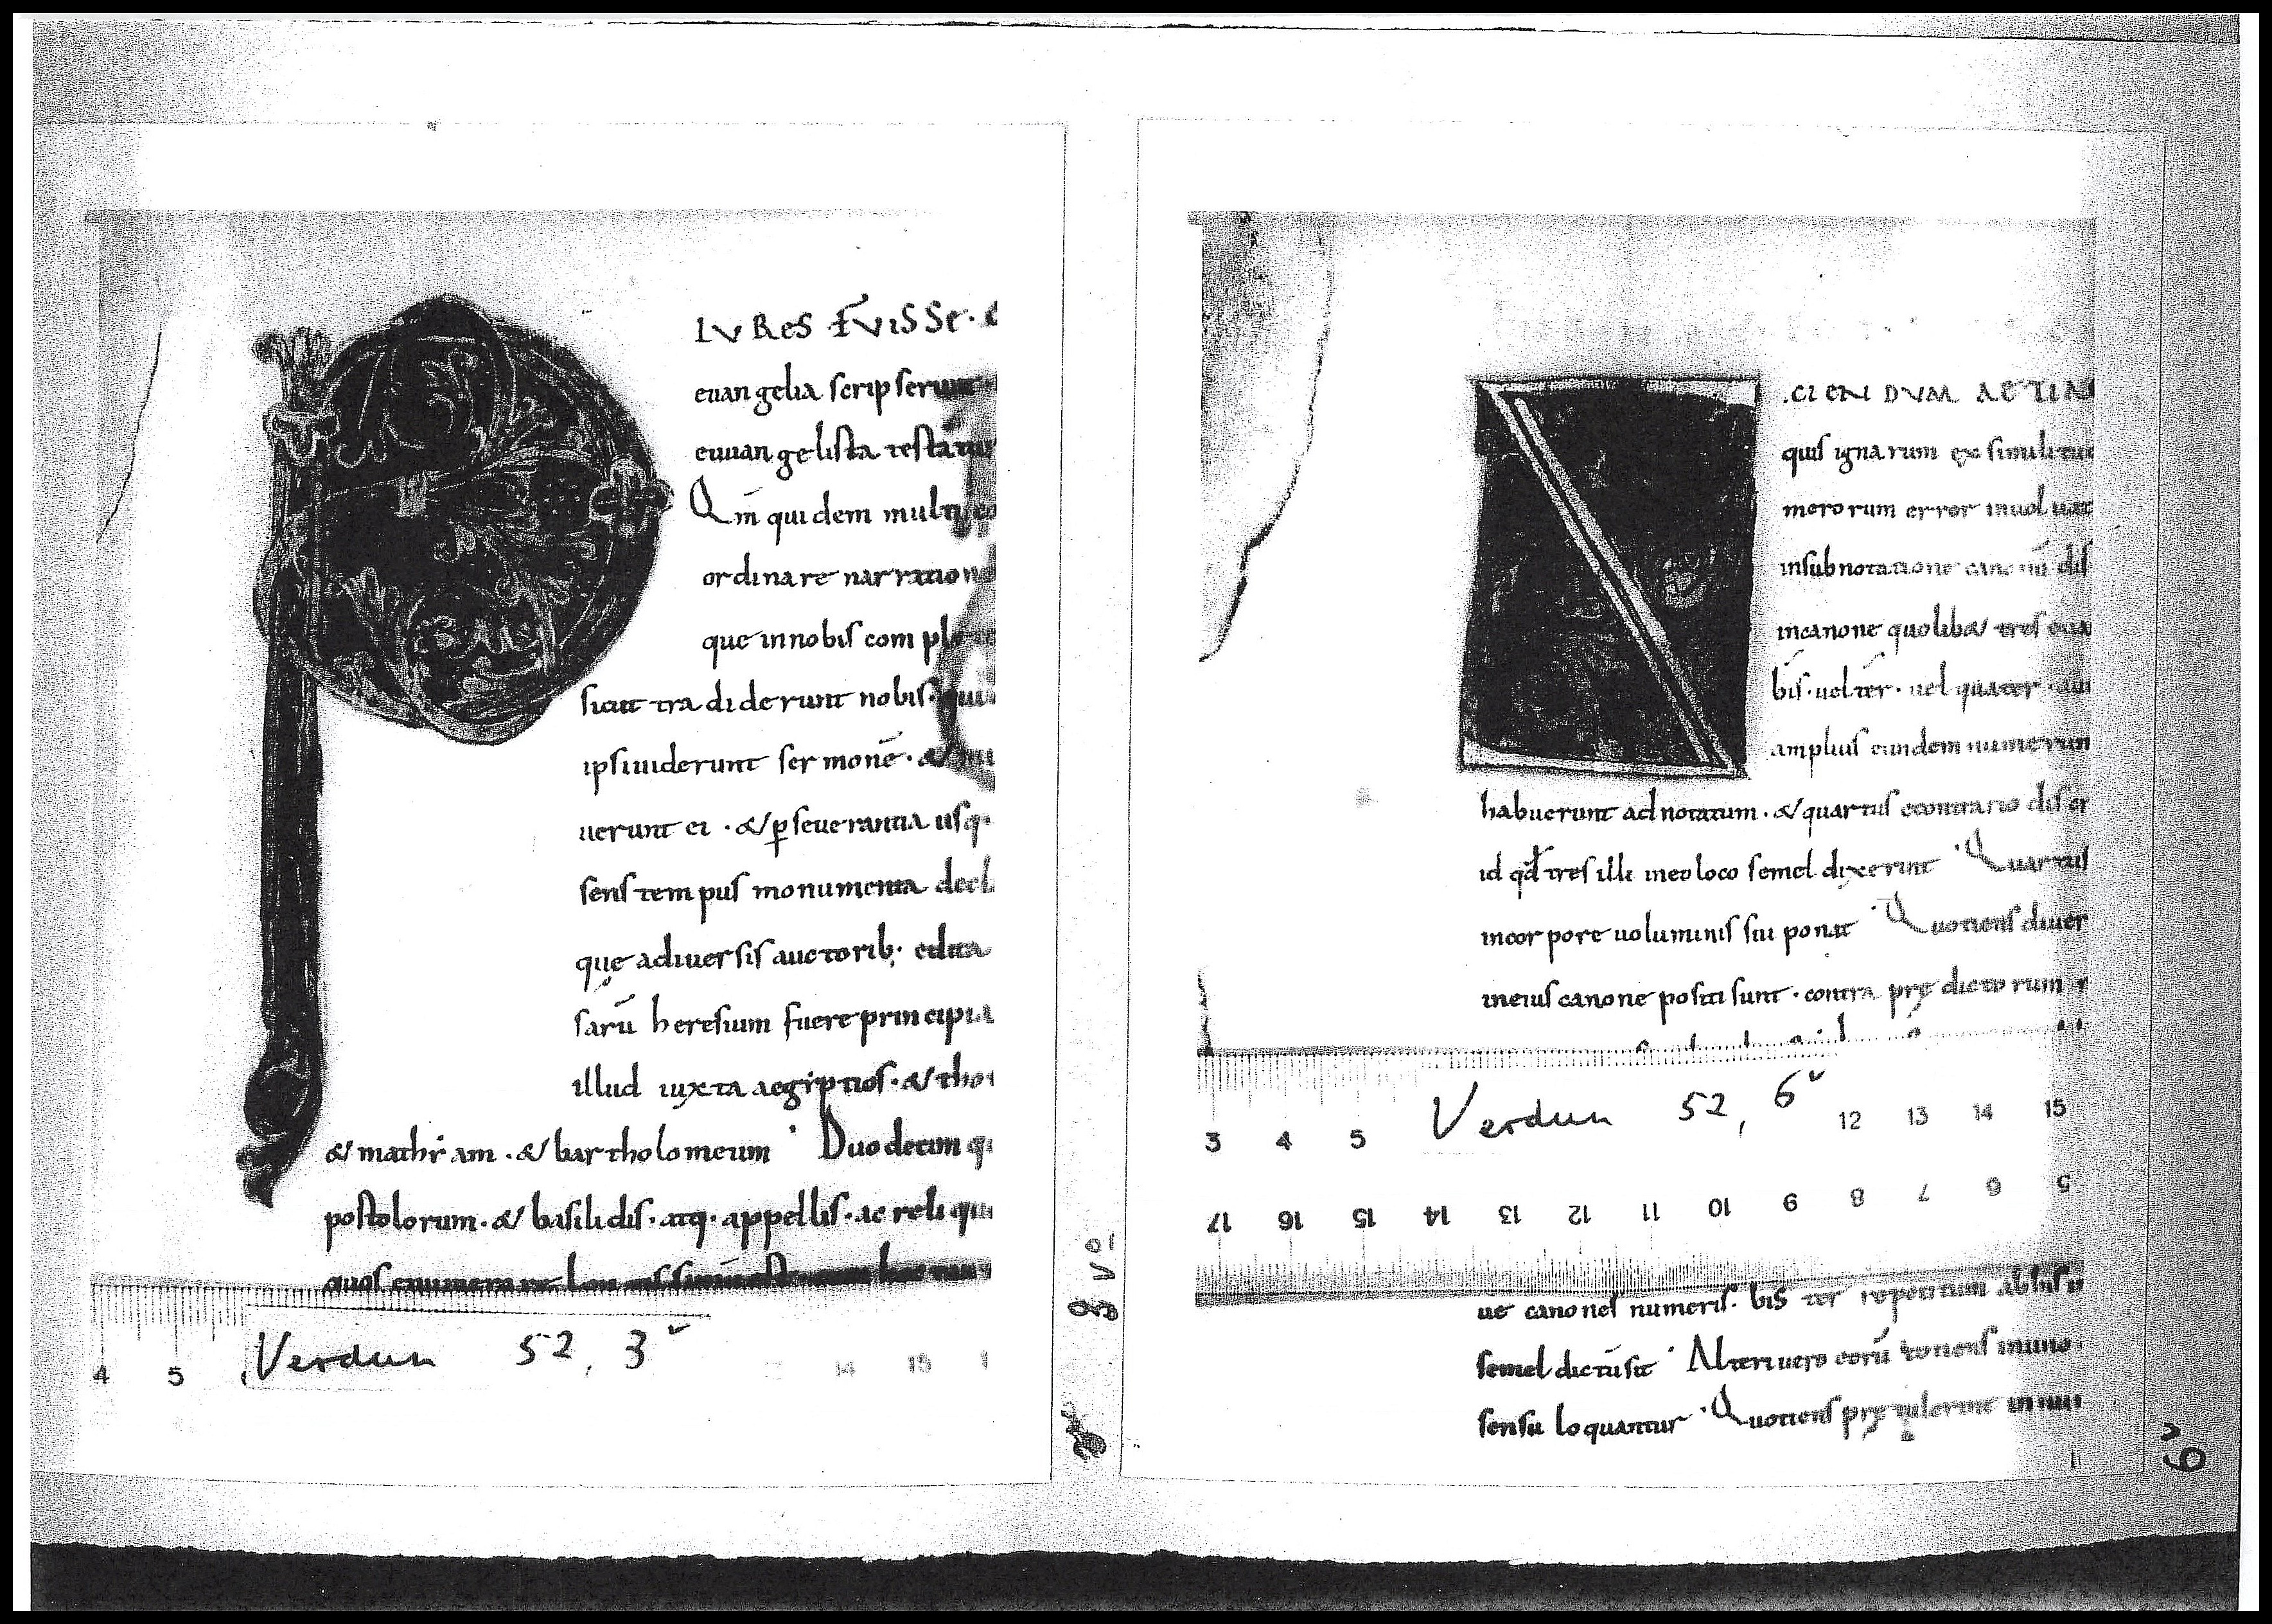 P
LVRES FVISSE·
euangelia scripserunt
euuangelista testatur
Qm̄ quidem multi co
ordinare narration
que innobis comple
sicut tradiderunt nobis· qui
ipsi uiderunt sermonē· &
uerunt ei· & ꝑseuerantia usq·
sens tempus monumenta decl
quę adiuersis auctorib; edita
sarū heresium fuere principia
illud iuxta aegiptios· & tho
& mathiam· & bartholomeum· Duodecim q
postolorum· & basilidis· atq· appellis· ac reliqu
quos enumerare
4 5 14 15
Verdun 52, 3v
3 vo
CIENDVM AETIAM
quis ignarum ex similitud
merorum error inuoluat
insubnotatione canonū dis
incanone quolib& tres eua
bis· uel ter· uel quater· au
amplius eundem numerum
habuerunt adnotatum· & quartus econtrario dis er
id qđ tres illi ineo loco semel dixerint· Quartus
incorpore uoluminis sui ponat· Quotiens diuer
ineius canone positi sunt· contra prędictorum
3 4 5 12 13 14 15
Verdun 52, 6v
17 16 15 14 13 12 11 10 9 8 7 6 5
ue canones numeris· bis ter repetitum abhis
semel dictū sit· Alteri uero eorū totiens inuno
sensu loquantur· Quotiens prętulerint
6v